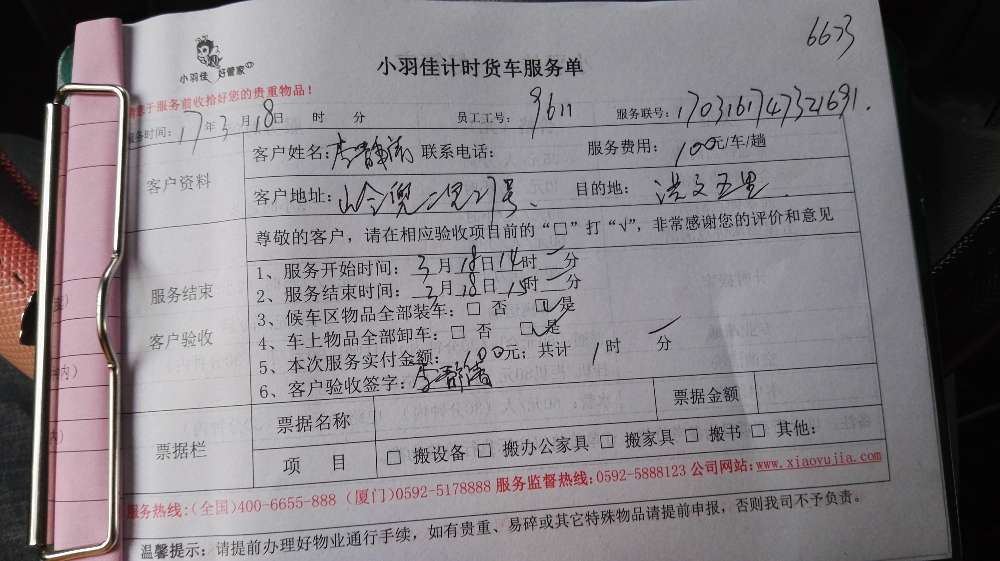 6633
小羽佳 好管家
小羽佳计时货车服务单
于服务前收拾好您的贵重物品！
服务时间：17年3月18日 时 分 员工工号：9611 服务联号：1703161747321691.
客户资料
客户姓名：李静 联系电话： 服务费用：100元/车/趟
客户地址：27号、 目的地：洪文五里.
尊敬的客户，请在相应验收项目前的“□”打“√”，非常感谢您的评价和意见
服务结束
客户验收
1、服务开始时间：3月18日14时一分
2、服务结束时间：3月18日15时一分
3、候车区物品全部装车：□ 否 ☑ 是
4、车上物品全部卸车：□ 否 ☑ 是
5、本次服务实付金额：100元；共计 1时 一分
6、客户验收签字：李静
票据栏
票据名称 票据金额
项 目 □ 搬设备 □ 搬办公家具 □ 搬家具 □ 搬书 □ 其他：
服务热线：(全国)400-6655-888 (厦门)0592-5178888 服务监督热线：0592-5888123 公司网站：www.xiaoyujia.com
温馨提示：请提前办理好物业通行手续，如有贵重、易碎或其它特殊物品请提前申报，否则我司不予负责。